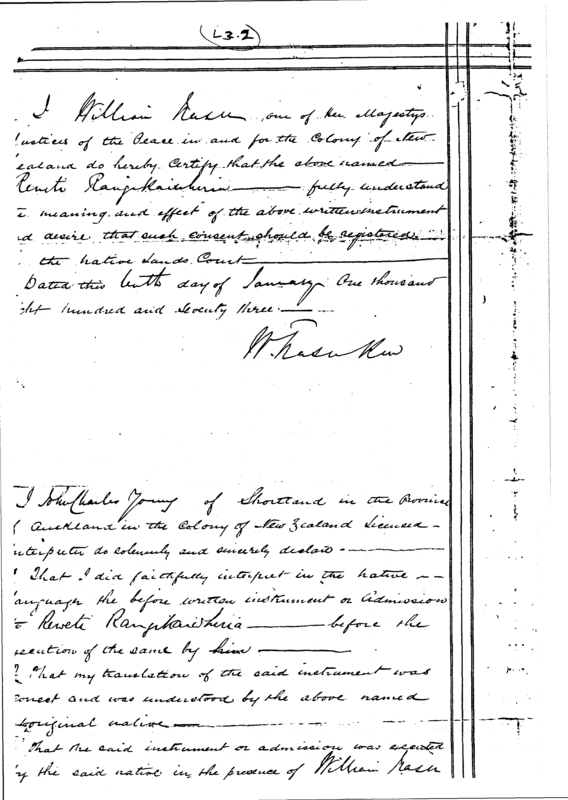 L3.2
I William Fraser one of Her Majestys
ustices of the Peace in and for the Colony of New
ealand do hereby Certify that the above named
Reweti Rangikaiwhiria fully understand
e meaning and effect of the above written instrument
d desire that such consent should be registered
the Native Lands Court
Dated this tenth day of January One thousand
ght hundred and Seventy three.
W. Fraser
I John Charles Young of Shortland in the Province
f Auckland in the Colony of New Zealand Licensed
nterpreter do solemnly and sincerely declare
That I did faithfully interpret in the native
anguage the before written instrument or Admission
to Reweti Rangikaiwhiria before the
xecution of the same by him
2 That my translation of the said instrument was
correct and was understood by the above named
aboriginal native
That the said instrument or admission was executed
by the said native in the presence of William Fraser